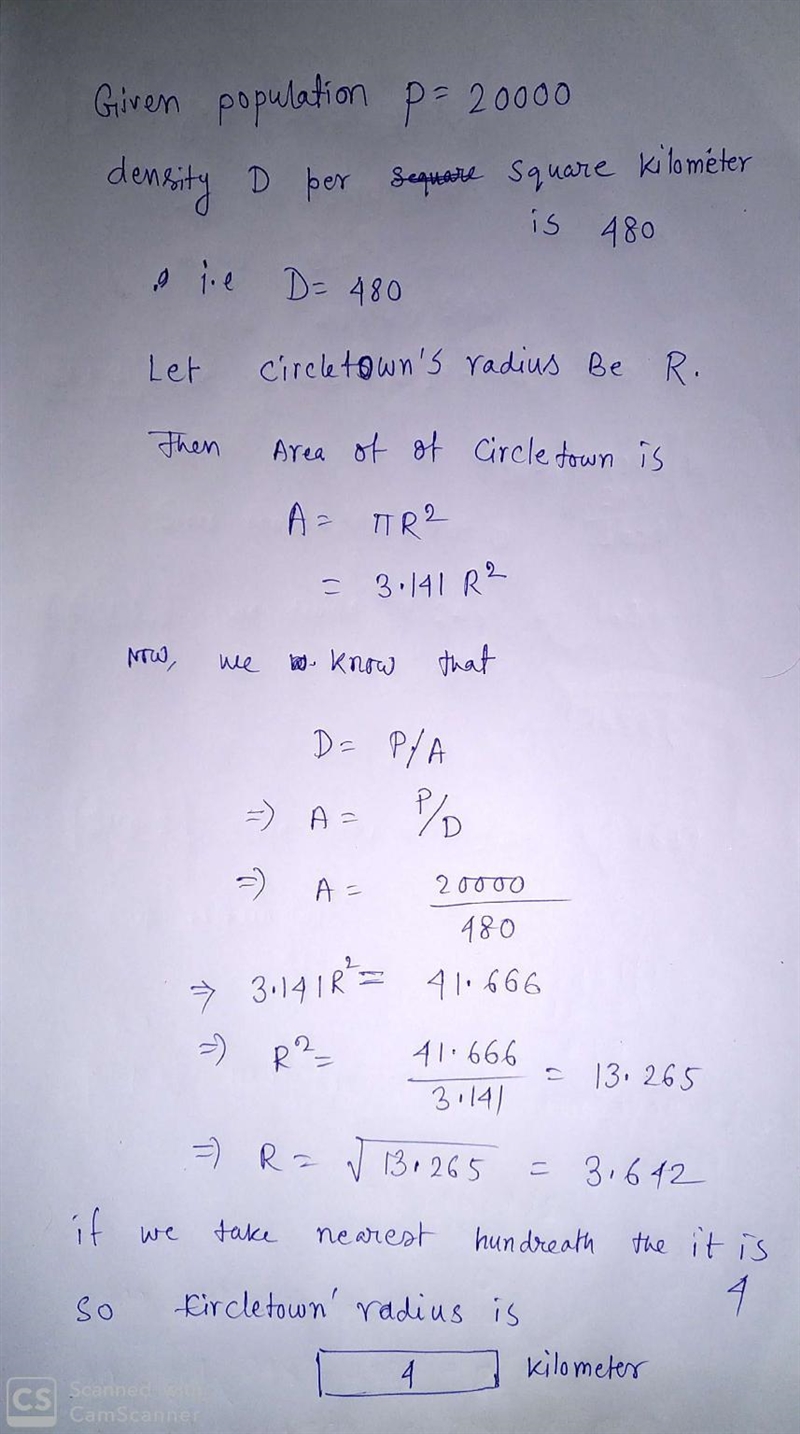 Given population P= 20000
density D per sequare square kilometer
is 480
i.e D= 480
Let circletown's radius Be R.
Then Area of of Circletown is
A= πR²
= 3.141 R²
Now, we know that
D= P/A
=> A= P/D
=> A= 20000/480
=> 3.141R²= 41.666
=> R²= 41.666/3.141 = 13.265
=> R= √13.265 = 3.642
if we take nearest hundreath the it is
4
so Circletown' radius is
4 kilometer
CS Scanned with
CamScanner